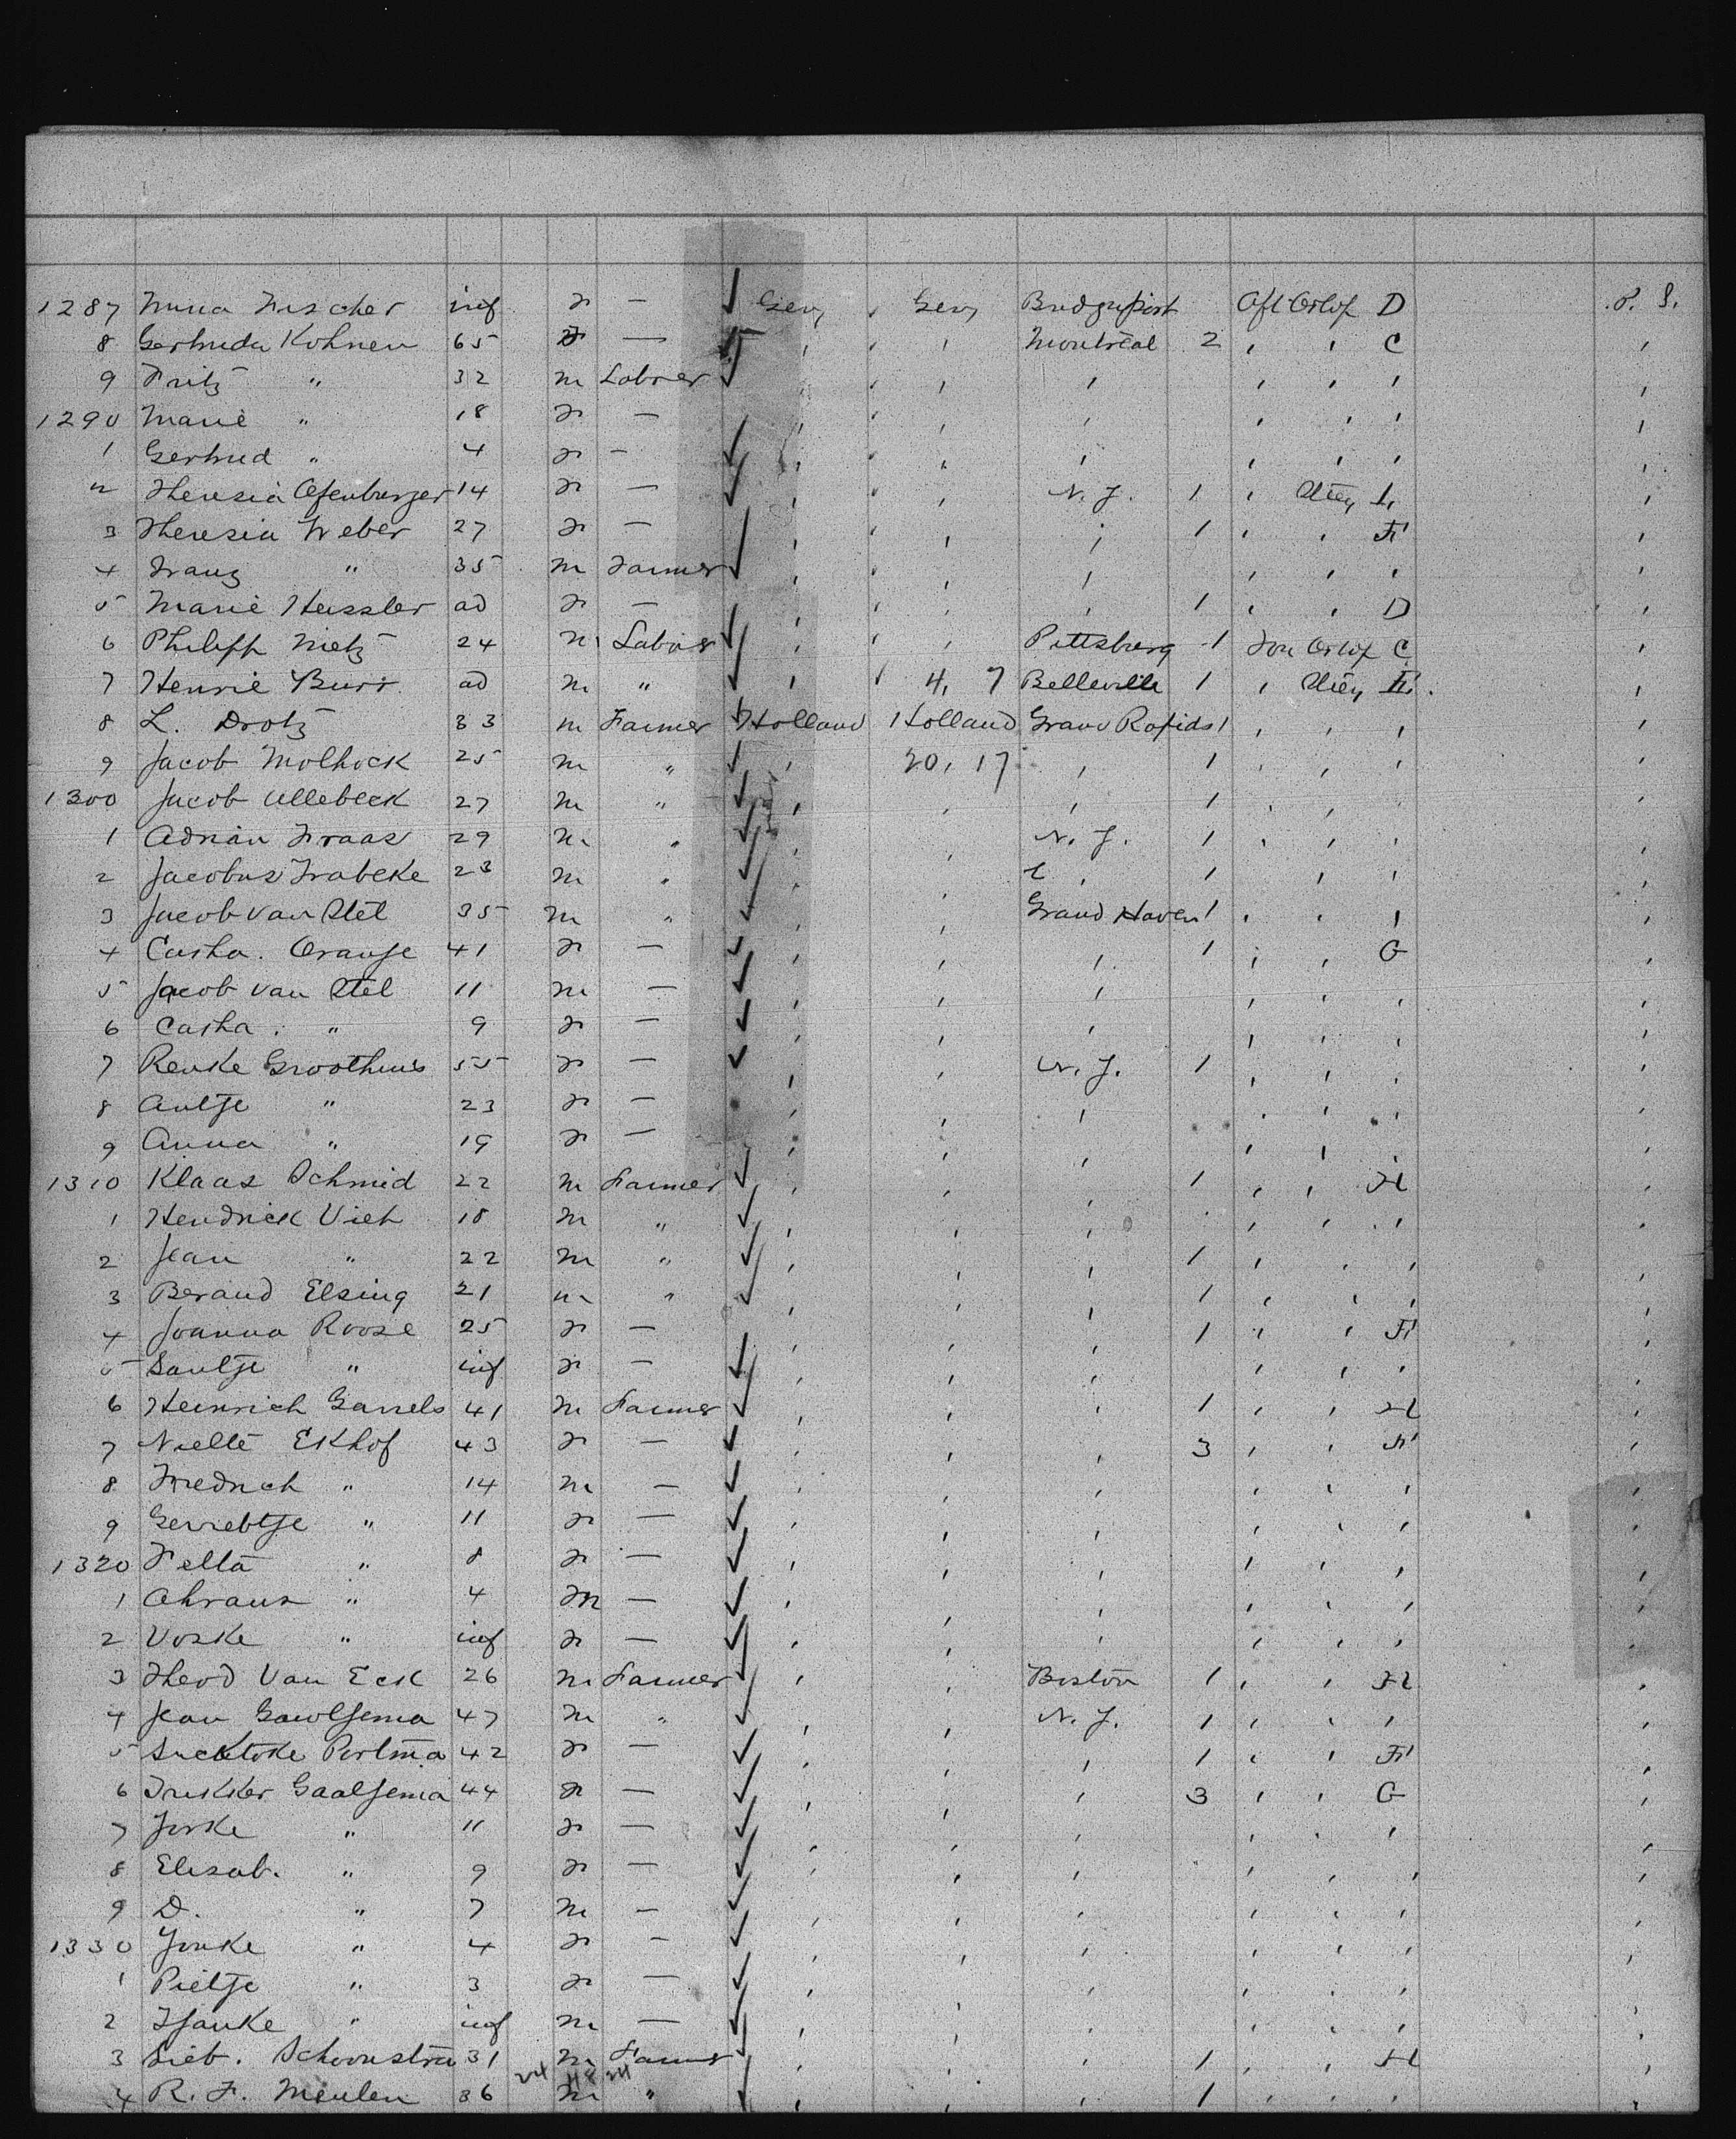 1287 Fischer inf f — Gery Gery Bridgeport Aft Orlop D P. S.
8 Gertruda Kohnen 65 f — , , Montreal 2 , , C ,
9 Fritz " 32 m Laborer , , , , , , ,
1290 Marie " 18 f — , , , , , , ,
1 Gertrud " 4 f — , , , , , , ,
2 Theresia 14 f — , , N. Y. 1 , ,
3 Theresia Weber 27 f — , , , 1 , , F ,
4 Franz " 35 m Farmer , , , , , , ,
5 Marie Heissler ad f — , , , 1 , , D ,
6 Philipp Metz 24 m Labor , , Pittsburg 1 For Orlop C ,
7 Henrie Burr ad m " , 4, 7 Belleville 1 , ,
8 L. Drotz 33 m Farmer Holland Holland Grand Rapids 1 , , , ,
9 Jacob Molhock 25 m " , 20, 17 , 1 , , , ,
1300 Jacob Ullebeek 27 m " , , , 1 , , , ,
1 Adrian Fraas 29 m " , , N. Y. 1 , , , ,
2 Jacobus Frabeke 23 m " , , , 1 , , ,
3 Jacob van Stel 35 m " , , Grand Haven 1 , , , ,
4 Casha. Oranje 41 f — , , , 1 , , G ,
5 Jacob van Stel 11 m — , , , , , , ,
6 Casha. " 9 f — , , , , , , ,
7 Renke Groothuis 55 f — , , N. Y. 1 , , , ,
8 Antje " 23 f — , , , , , , ,
9 Anna " 19 f — , , , , , , ,
1310 Klaas Schmid 22 m Farmer , , , 1 , , H ,
1 Hendrick Vieh 18 m " , , , , , , ,
2 Jean " 22 m " , , , 1 , , , ,
3 Berand Elsing 21 m " , , , 1 , , , ,
4 Joanna Roose 25 f — , , , 1 , , F ,
5 Santje " inf f — , , , , , ,
6 Heinrich Garrels 41 m Farmer , , , 1 , , H ,
7 Nielte Ekhof 43 f — , , , 3 , , F ,
8 Friedrich " 14 m — , , , , , , ,
9 Gerrebtje " 11 f — , , , , , , ,
1320 Felta " 8 f — , , , , , , ,
1 Ahraus " 4 m — , , , , , , ,
2 Voske " inf f — , , , , , , ,
3 Theod Van Eck 26 m Farmer , , Boston 1 , , H ,
4 Jean Gaolsema 47 m " , , N. Y. 1 , , , ,
5 42 f — , , , 1 , , F ,
6 Gaalsema 44 f — , , , 3 , , G ,
7 Jorke " 11 f — , , , , , , ,
8 Elisab. " 9 f — , , , , , , ,
9 D. " 7 m — , , , , , , ,
1330 Jonke " 4 f — , , , , , , ,
1 Pietje " 3 f — , , , , , , ,
2 Tjanke " inf m — , , , , , , ,
3 Sieb. Schoonstra 31 m Farmer , , , 1 , , H ,
24 48 24
4 R. F. Meulen 36 m " , , , 1 , , , ,